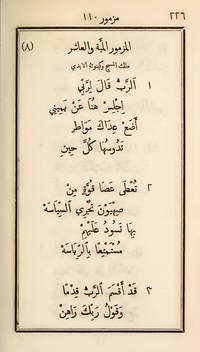 ٢٢٦ مزمور ١١٠
المزمور المئة والعاشر (٨)
ملك المسيح وكهنوته الابدي
١ اَلرَّبُّ قَالَ لِرَبِّي
اِجْلِسْ هُنَا عَنْ يَمِينِي
أَضَعْ عِدَاكَ مَوَاطِر
تَدُوسُهَا كُلَّ حِينِ
٢ تُعْطَى عَصَا قُوَّةٍ مِنْ
صِهْيُوْنَ تُجْرِي ٱلسِّيَاسَهْ
بِهَا تَسُودُ عَلَيْهِمْ
مُسْتَمْتِعًا بِٱلرِّيَاسَهْ
٣ قَدْ أَقْسَمَ ٱلرَّبُّ قِدْمًا
وَقَوْلُ رَبِّكَ رَاهِنْ